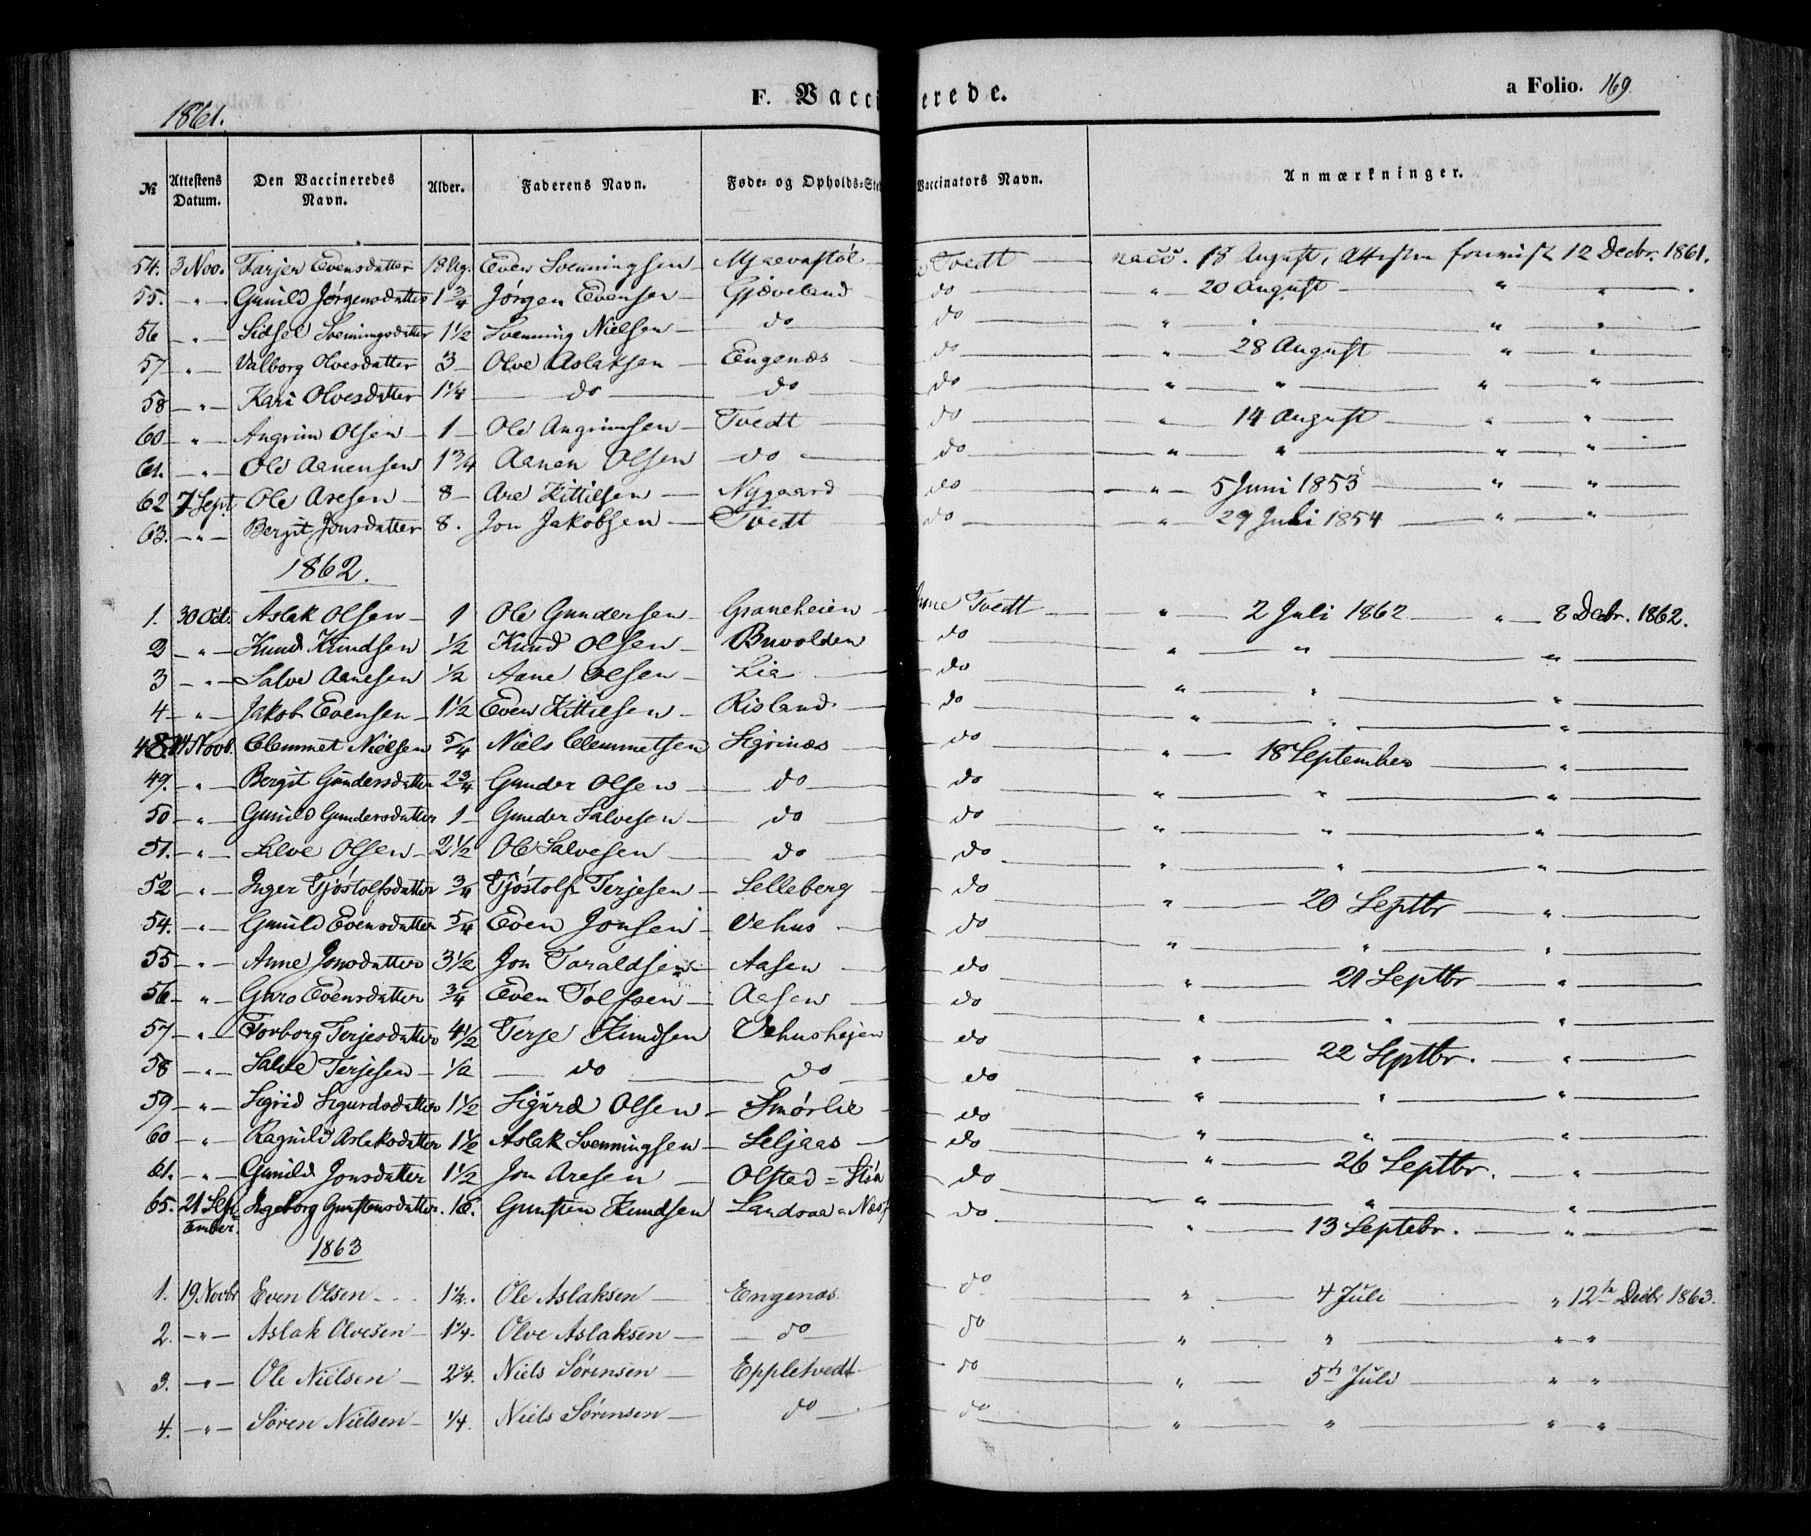 1861. F. Vaccinerede. a Folio. 169.
№ Attestens Datum. Den Vaccineredes Navn. Alder. Faderens Navn. Føde- og Opholds-Ste Vaccinators Navn. Anmærkninger.
54. 3 Nov. Tarjer Evensdatter 18 Ug. Even Svenningsen Mjaavastøl Tvedt vacc. 18 August, Attesten 12 Decbr. 1861.
55. " Gunild Jørgensdatter 1 3/4 Jørgen Evensen Gjæveland do " 20 August " "
56 " Sidsel Svenningsdatter 1 1/2 Svenning Nielsen do do " " " "
57 " Valborg Olvesdatter 3 Olve Aslaksen Engenæs do " 28 August " "
58 " Kari Olvesdatter 1 1/4 do do do " " " "
60 " Angrim Olsen 1 Ole Angrimsen Tvedt do " 14 August " "
61. " Ole Aanensen 1 3/4 Aanen Olsen do do " " " "
62 7 Sept Ole Aresen 8 Are Kittilsen Nygaard do " 5 Juni 1853 " "
63. " Bergit Jonsdatter 8. Jon Jakobsen Tvedt do " 29 Juli 1854 " "
1862.
1. 30 Oct. Aslak Olsen 1 Ole Gundersen Graneheien Tvedt " 2 Juli 1862 " 8 Decbr. 1862.
2 " Knud Knudsen 1/2 Knud Olsen Buvolden do " " "
3 " Salve Aanesen 1/2 Aane Olsen Lia do " " "
4 " Jakob Evensen 1 1/2 Even Kittilsen Risland do " " "
48 14 Novb. Clemmet Nielsen 5/4 Niels Clemmetsen Sigrinæs do " 18 September "
49. " Bergit Gundersdatter 2 3/4 Gunder Olsen do do " " "
50 " Gunild Gundersdatter 1 Gunder Salvesen do do " " "
51. " Salve Olsen 2 1/2 Ole Salvesen do do " " "
52 " Inger Tjøstolfsdatter 3/4 Tjøstolf Terjesen Selleberg do " 20 Septbr "
54. " Gunild Evensdatter 5/4 Even Jonsen Vehus do " " "
55 " Anne Jonsdatter 3 1/2 Jon Taraldsen Aasen do " 21 Septbr "
56 " Guro Evensdatter 3/4 Even Tolfsen Aasen do " " "
57 " Torborg Terjesdatter 4 1/2 Terje Knudsen Vehushejen do " 22 Septbr. "
58 " Salve Terjesen 1/2 do do do " " "
59 " Sigrid Sigurdsdatter 1 1/2 Sigurd Olsen Smørlie do " " "
60 " Ragnild Aslaksdatter 1 1/2 Aslak Svenningsen Seljaas do " 26 Septbr. "
61. " Gunild Jonsdatter 1 1/2 Jon Aresen Olsted = do " " "
65. 21 September. Ingeborg Gunstensdatter. 16. Gunsten Knudsen Landsaa do " 13 Septebr. "
1863
1. 19 Novbr Even Olsen 1 1/2. Ole Aslaksen Engenæs do " 4 Juli " 12te Decbr 1863.
2. " Aslak Olvesen 1 1/4. Olve Aslaksen do do " " " "
3. " Ole Nielsen 2 1/4. Niels Sørensen Eppletvedt do " 5te Juli " "
4. " Søren Nielsen 1/4. Niels Sørensen do do " " " "